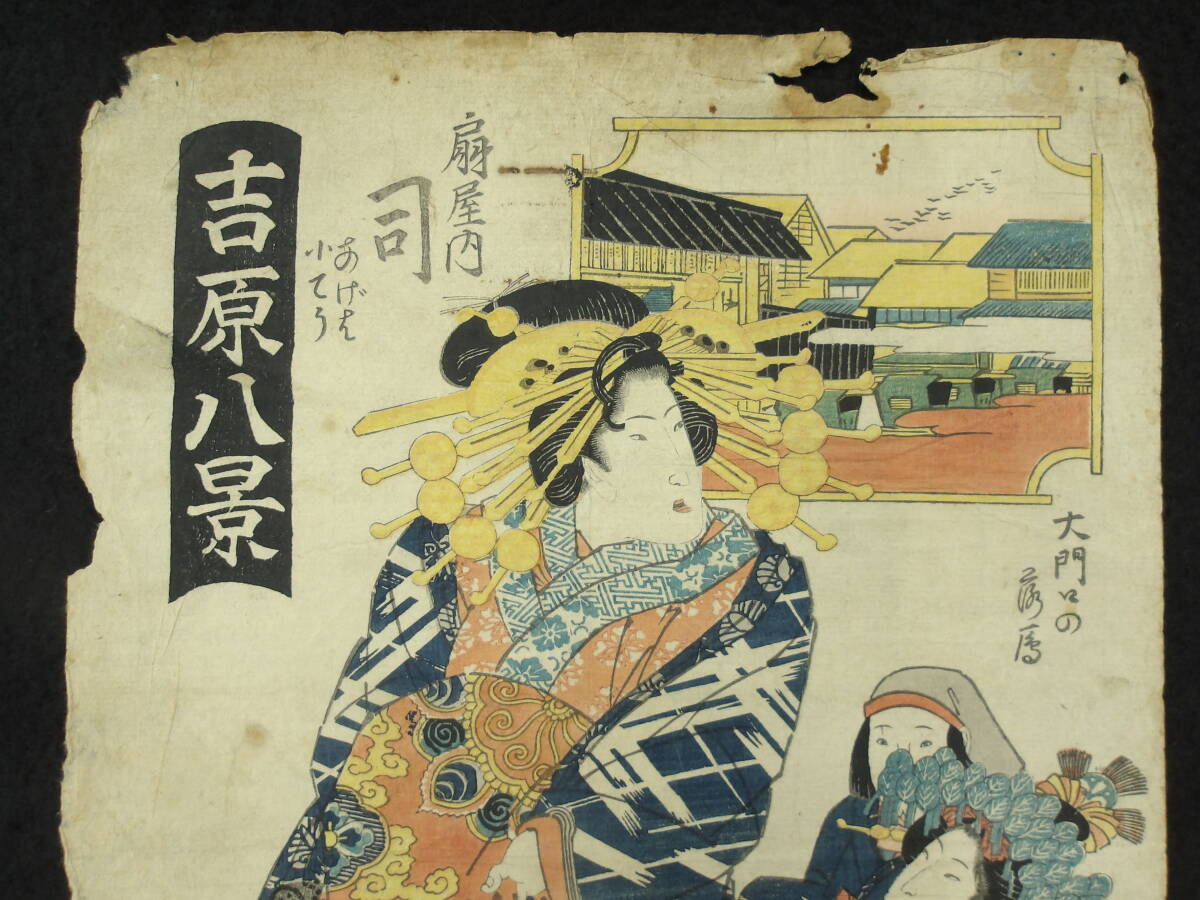 吉原八景
扇屋内
司
あげは
小てう
大門口の
落鴈